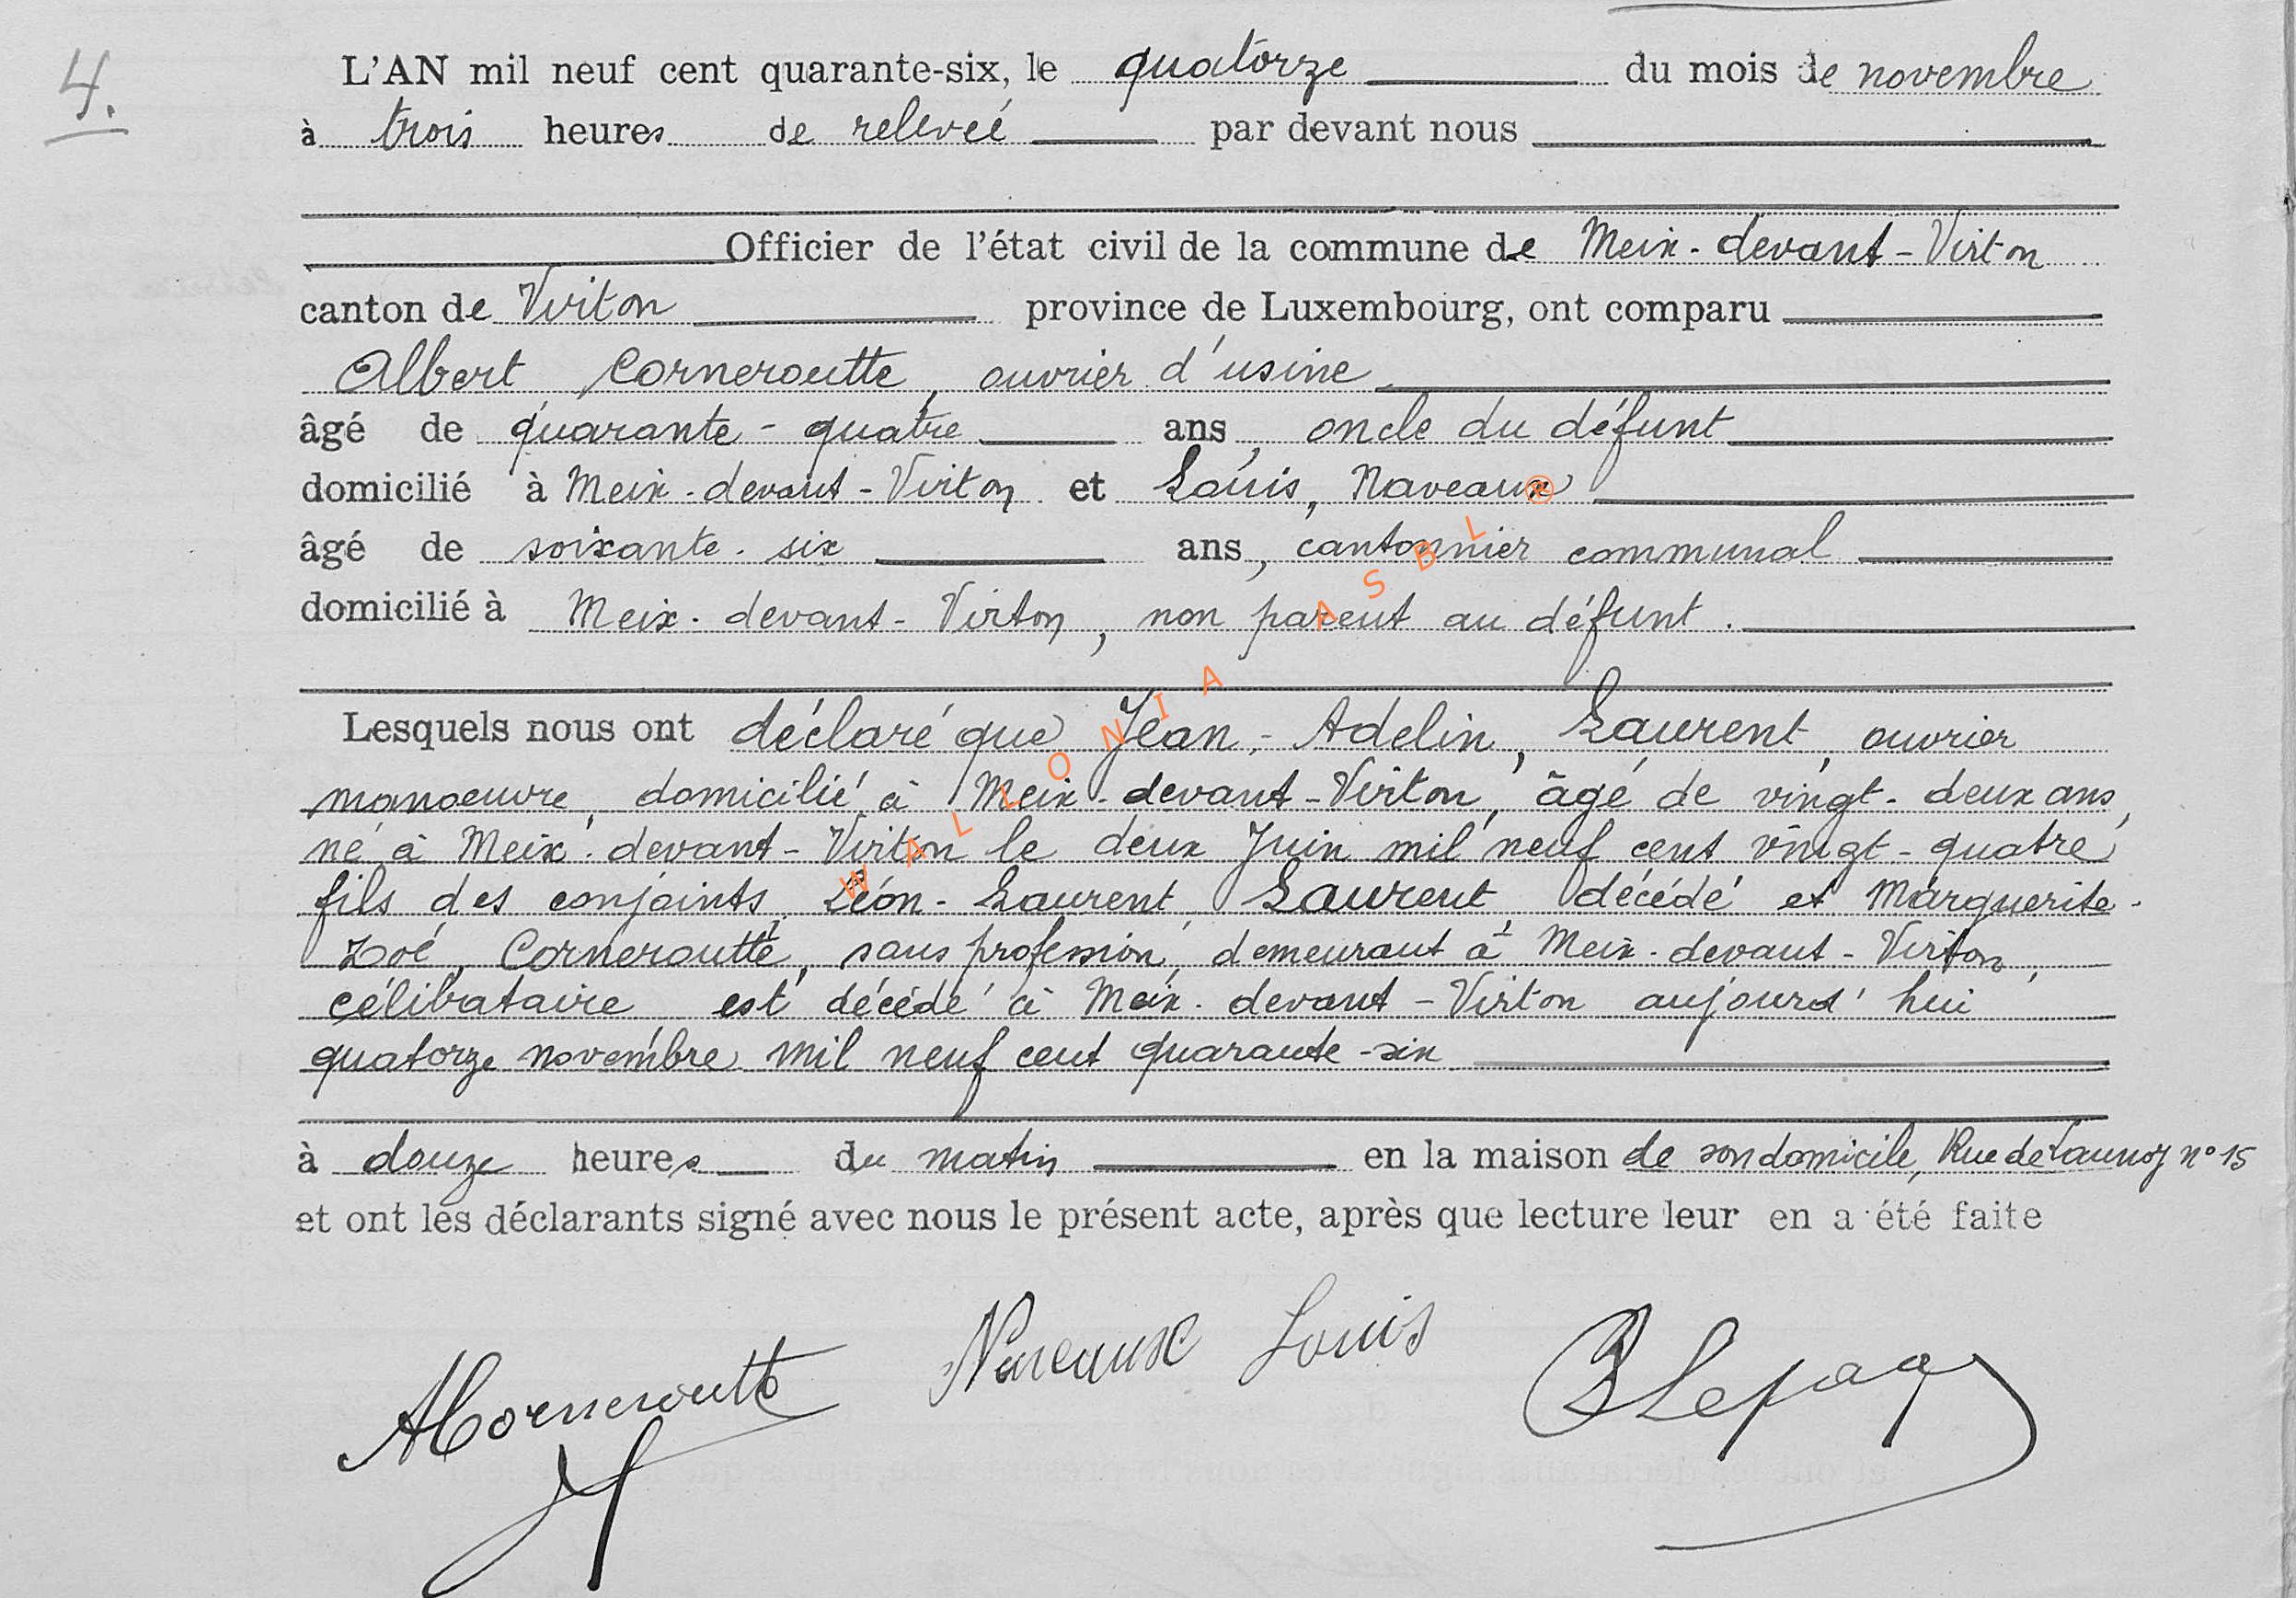 4.
L'AN mil neuf cent quarante-six, le quatorze du mois de novembre
à trois heures de relevée par devant nous
Officier de l'état civil de la commune de Meix-devant-Virton
canton de Virton province de Luxembourg, ont comparu
Albert Corneroutte, ouvrier d'usine
âgé de quarante-quatre ans, oncle du défunt
domicilié à Meix-devant-Virton et Louis, Naveaux
âgé de soixante-six ans, cantonnier communal
domicilié à Meix-devant-Virton, non parent au défunt.
Lesquels nous ont déclaré que Jean-Adelin, Laurent, ouvrier
manoeuvre, domicilié à Meix-devant-Virton, âgé de vingt-deux ans,
né à Meix-devant-Virton le deux Juin mil neuf cent vingt-quatre,
fils des conjoints, Léon-Laurent, Laurent, décédé et Marguerite-
Zoé, Corneroutte, sans profession, demeurant à Meix-devant-Virton,
célibataire est décédé à Meix-devant-Virton aujourd'hui
quatorze novembre mil neuf cent quarante-six
à douze heures du matin en la maison de son domicile, Rue de Launoy n° 15
et ont les déclarants signé avec nous le présent acte, après que lecture leur en a été faite
ACorneroutte Naveaux Louis Lepage
WALLONIA ASBL ®